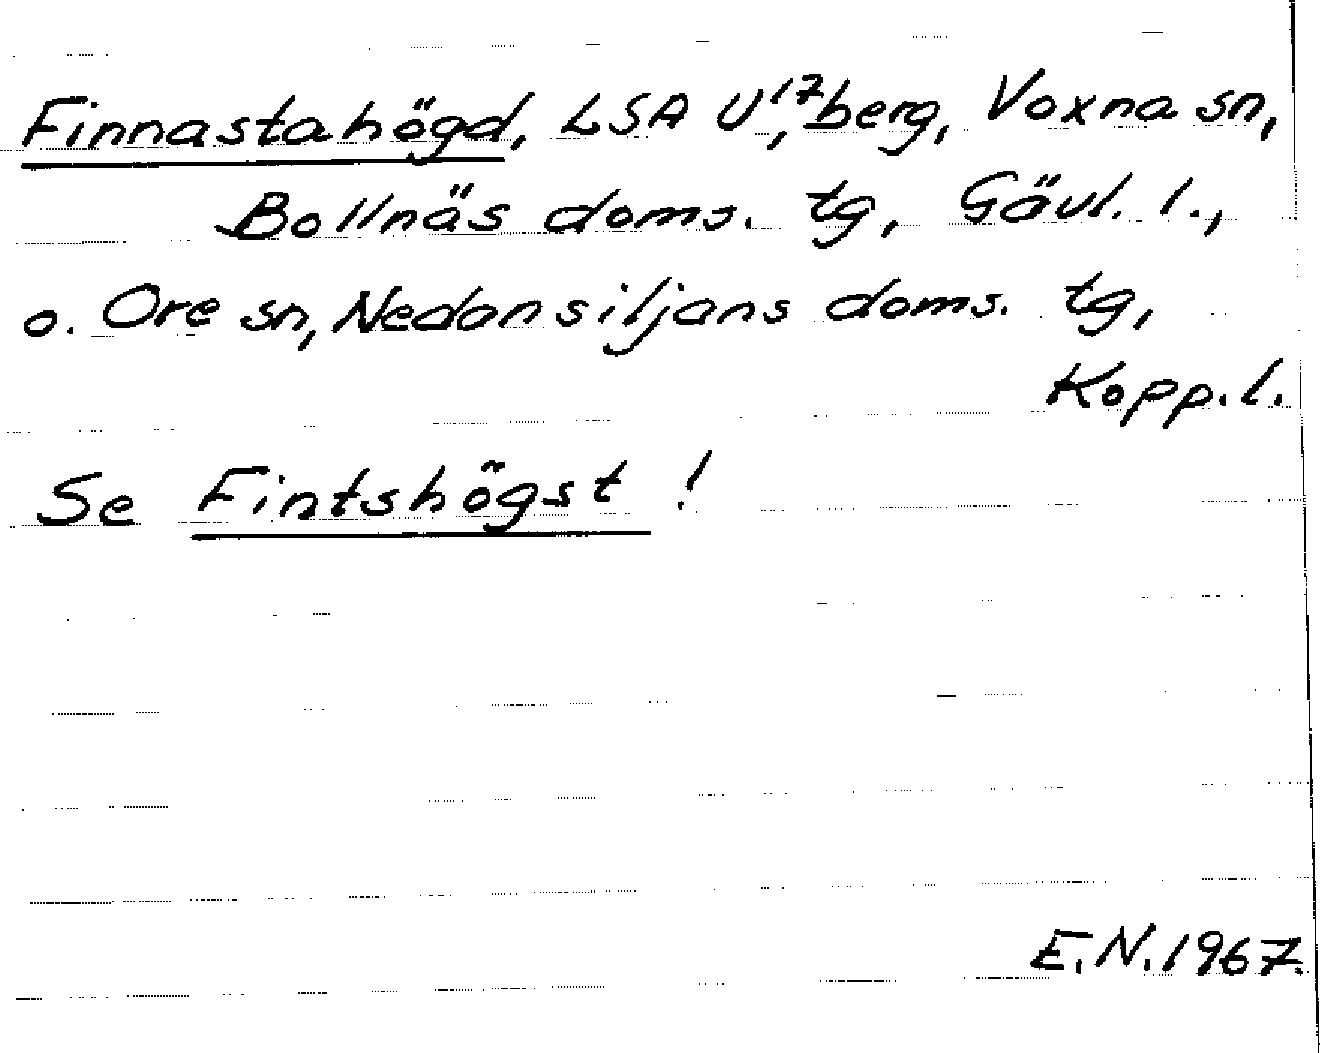 Finnastahögd, LSA U¹,⁷, berg, Voxna sn,
Bollnäs doms. tg, Gävl. l.,
o. Ore sn, Nedansiljans doms. tg,
Kopp. l.
Se Fintshögst !
E.N. 1967.